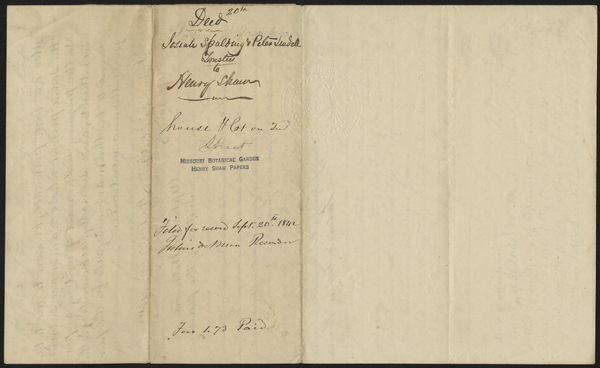 Deed 20th
Josiah Spalding & Peter Lindell
Trustees
to
Henry Shaw
House & Lot on 2nd
Street
MISSOURI BOTANICAL GARDEN
HENRY SHAW PAPERS
Filed for record Sept. 20th 1842
Recorder
Fees 1.73 Paid